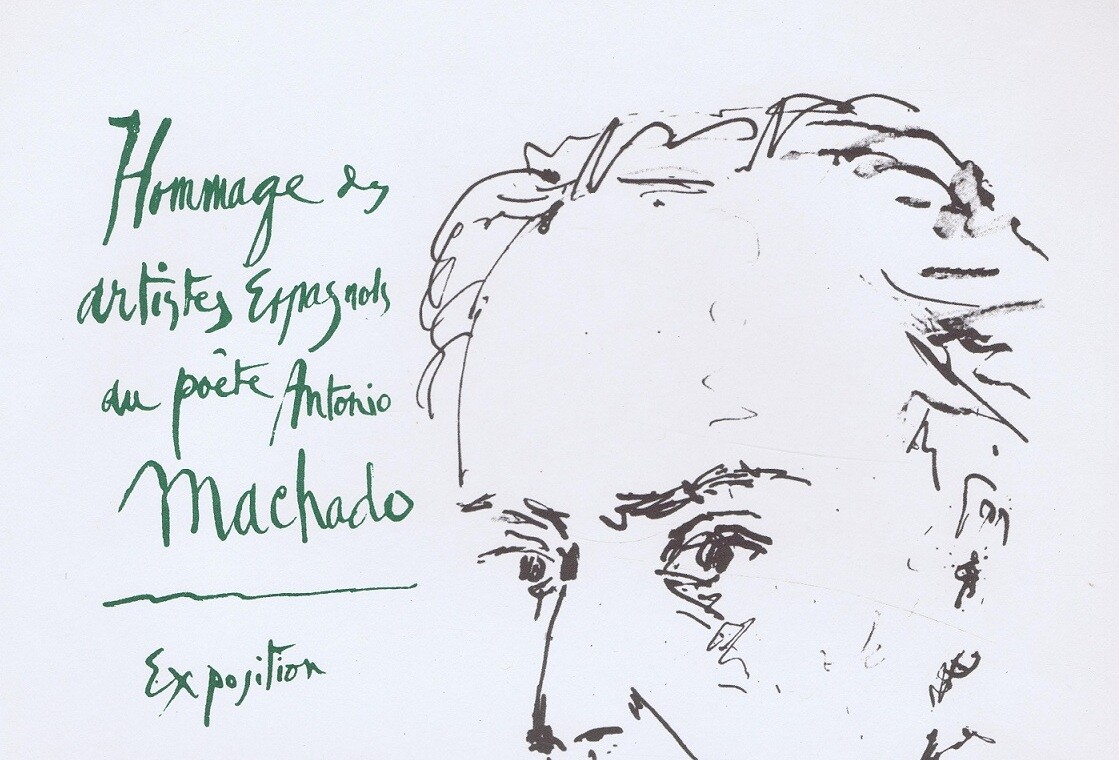 Hommage des
artistes Espagnols
au poète Antonio
Machado
Exposition